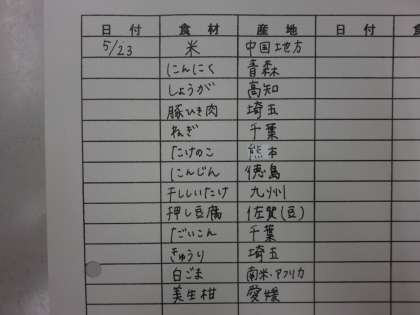 日付 食材 産地 日付 食
5/23 米 中国地方
にんにく 青森
しょうが 高知
豚ひき肉 埼玉
ねぎ 千葉
たけのこ 熊本
にんじん 徳島
干ししいたけ 九州
押し豆腐 佐賀(豆)
だいこん 千葉
きゅうり 埼玉
白ごま 南米・アフリカ
美生柑 愛媛